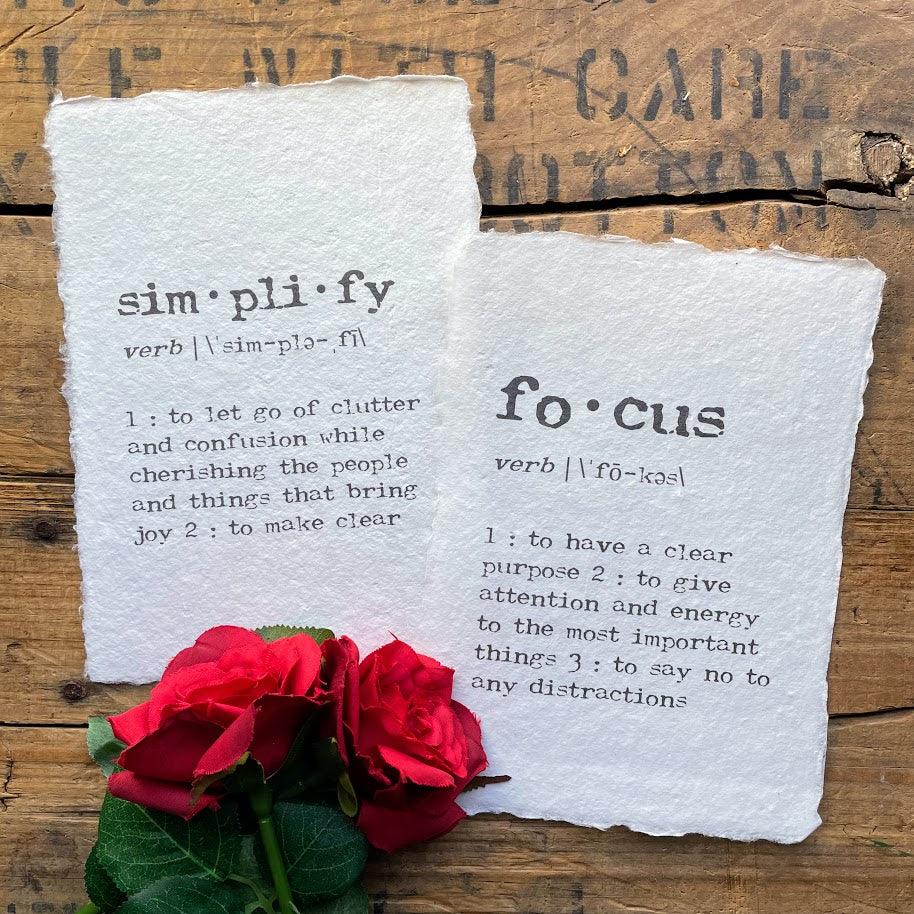 WITH CARE
BOTTOM
sim·pli·fy
verb |\ˈsim-plə-ˌfī\
1 : to let go of clutter
and confusion while
cherishing the people
and things that bring
joy 2 : to make clear
fo·cus
verb |\ˈfō-kəs\
1 : to have a clear
purpose 2 : to give
attention and energy
to the most important
things 3 : to say no to
any distractions